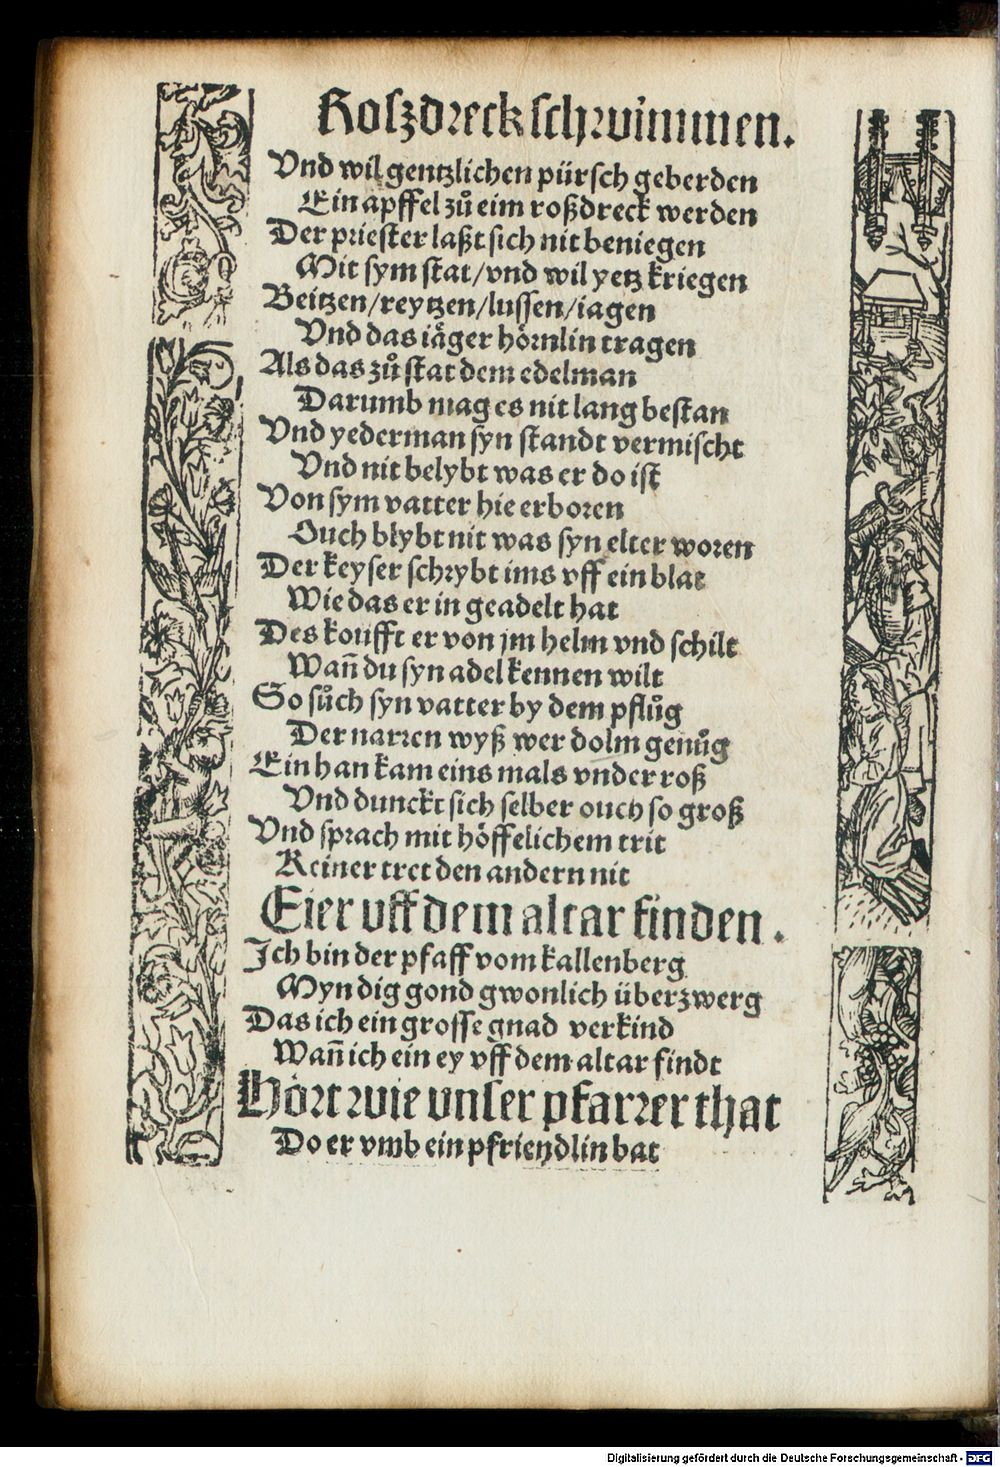 Roszdreck schwimmen.
Vnd wil gentzlichen pürsch geberden
Ein apffel zů eim roßdreck werden
Der priester laßt sich nit beniegen
Mit sym stat/vnd wil yetz kriegen
Beitzen/reytzen/lussen/iagen
Vnd das iäger hörnlin tragen
Als das zů stat dem edelman
Darumb mag es nit lang bestan
Vnd yederman syn standt vermischt
Vnd nit belybt was er do ist
Von sym vatter hie erboren
Ouch blybt nit was syn elter woren
Der keyser schrybt ims vff ein blat
Wie das er in geadelt hat
Des koufft er von jm helm vnd schilt
Wañ du syn adel kennen wilt
So sůch syn vatter by dem pflůg
Der narren wyß wer dolm genůg
Ein han kam eins mals vnder roß
Vnd dunckt sich selber ouch so groß
Vnd sprach mit höffelichem trit
Keiner tret den andern nit
Eier vff dem altar finden.
Ich bin der pfaff vom kallenberg
Myn dig gond gwonlich überzwerg
Das ich ein grosse gnad verkind
Wañ ich ein ey vff dem altar findt
Hört wie vnser pfarrer that
Do er vmb ein pfriendlin bat
Digitalisierung gefördert durch die Deutsche Forschungsgemeinschaft - DFG